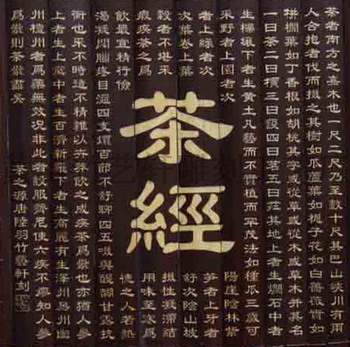 茶者南方之嘉木也一尺二尺乃至數十尺其巴山峽川有兩
人合抱者伐而掇之其樹如瓜蘆葉如梔子花如白薔薇實如
栟櫚葉如丁香根如胡桃其字或從草或從木或草木并其名
一曰茶二曰檟三曰蔎四曰茗五曰荈其地上者生爛石中者
生櫟壤下者生黃土凡藝而不實植而罕茂法如種瓜三歲可
采野者上園者次 陽崖陰林紫
者上綠者次 笋者上牙者
次葉卷上葉 舒次陰山坡
穀者不堪采 掇性凝滯結
瘕疾茶之爲 用味至寒爲
飲最宜精行儉 德之人若熱
茶經
渴凝悶腦疼目澀四支煩百節不舒聊四五啜與醍醐甘露抗
衡也采不時造不精雜以卉莽飲之成疾茶爲累也亦猶人參
上者生上黨中者生百濟新羅下者生高麗有生澤州易州幽
州檀州者爲藥無效況非此者設服薺苨使六疾不瘳知人參
爲累則茶累盡矣 茶之源唐陸羽竹藝軒刻